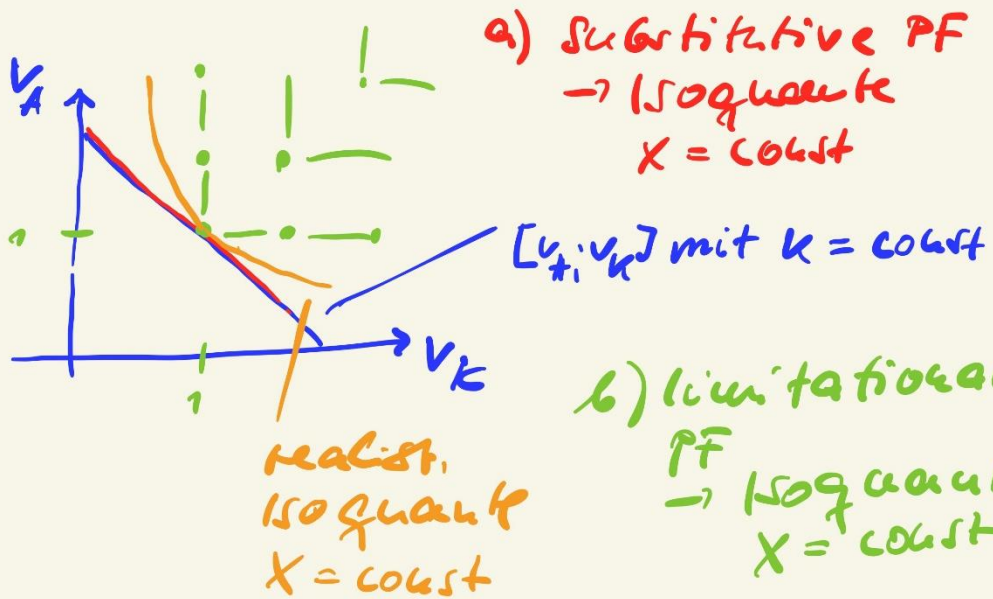 a) Substitutive PF
→ Isoquante
X = const
V_A
1
[v_A; v_K] mit K = const
V_K
1
b) limitationa
PF
→ Isoquan
X = const
realist.
Isoquante
X = const